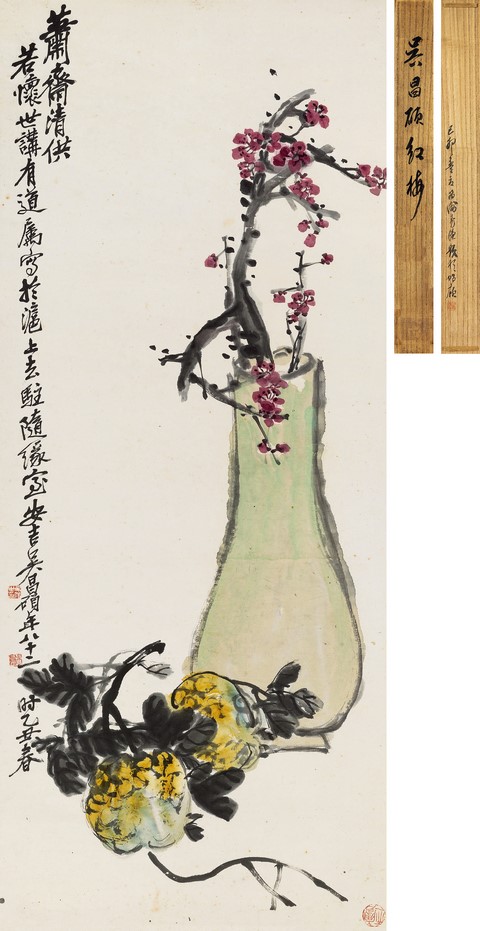 蕭齋清供
若懷世講有道屬寫於滬上去駐隨緣室安吉吳昌碩年八十二
時乙丑春
吳昌碩紅梅